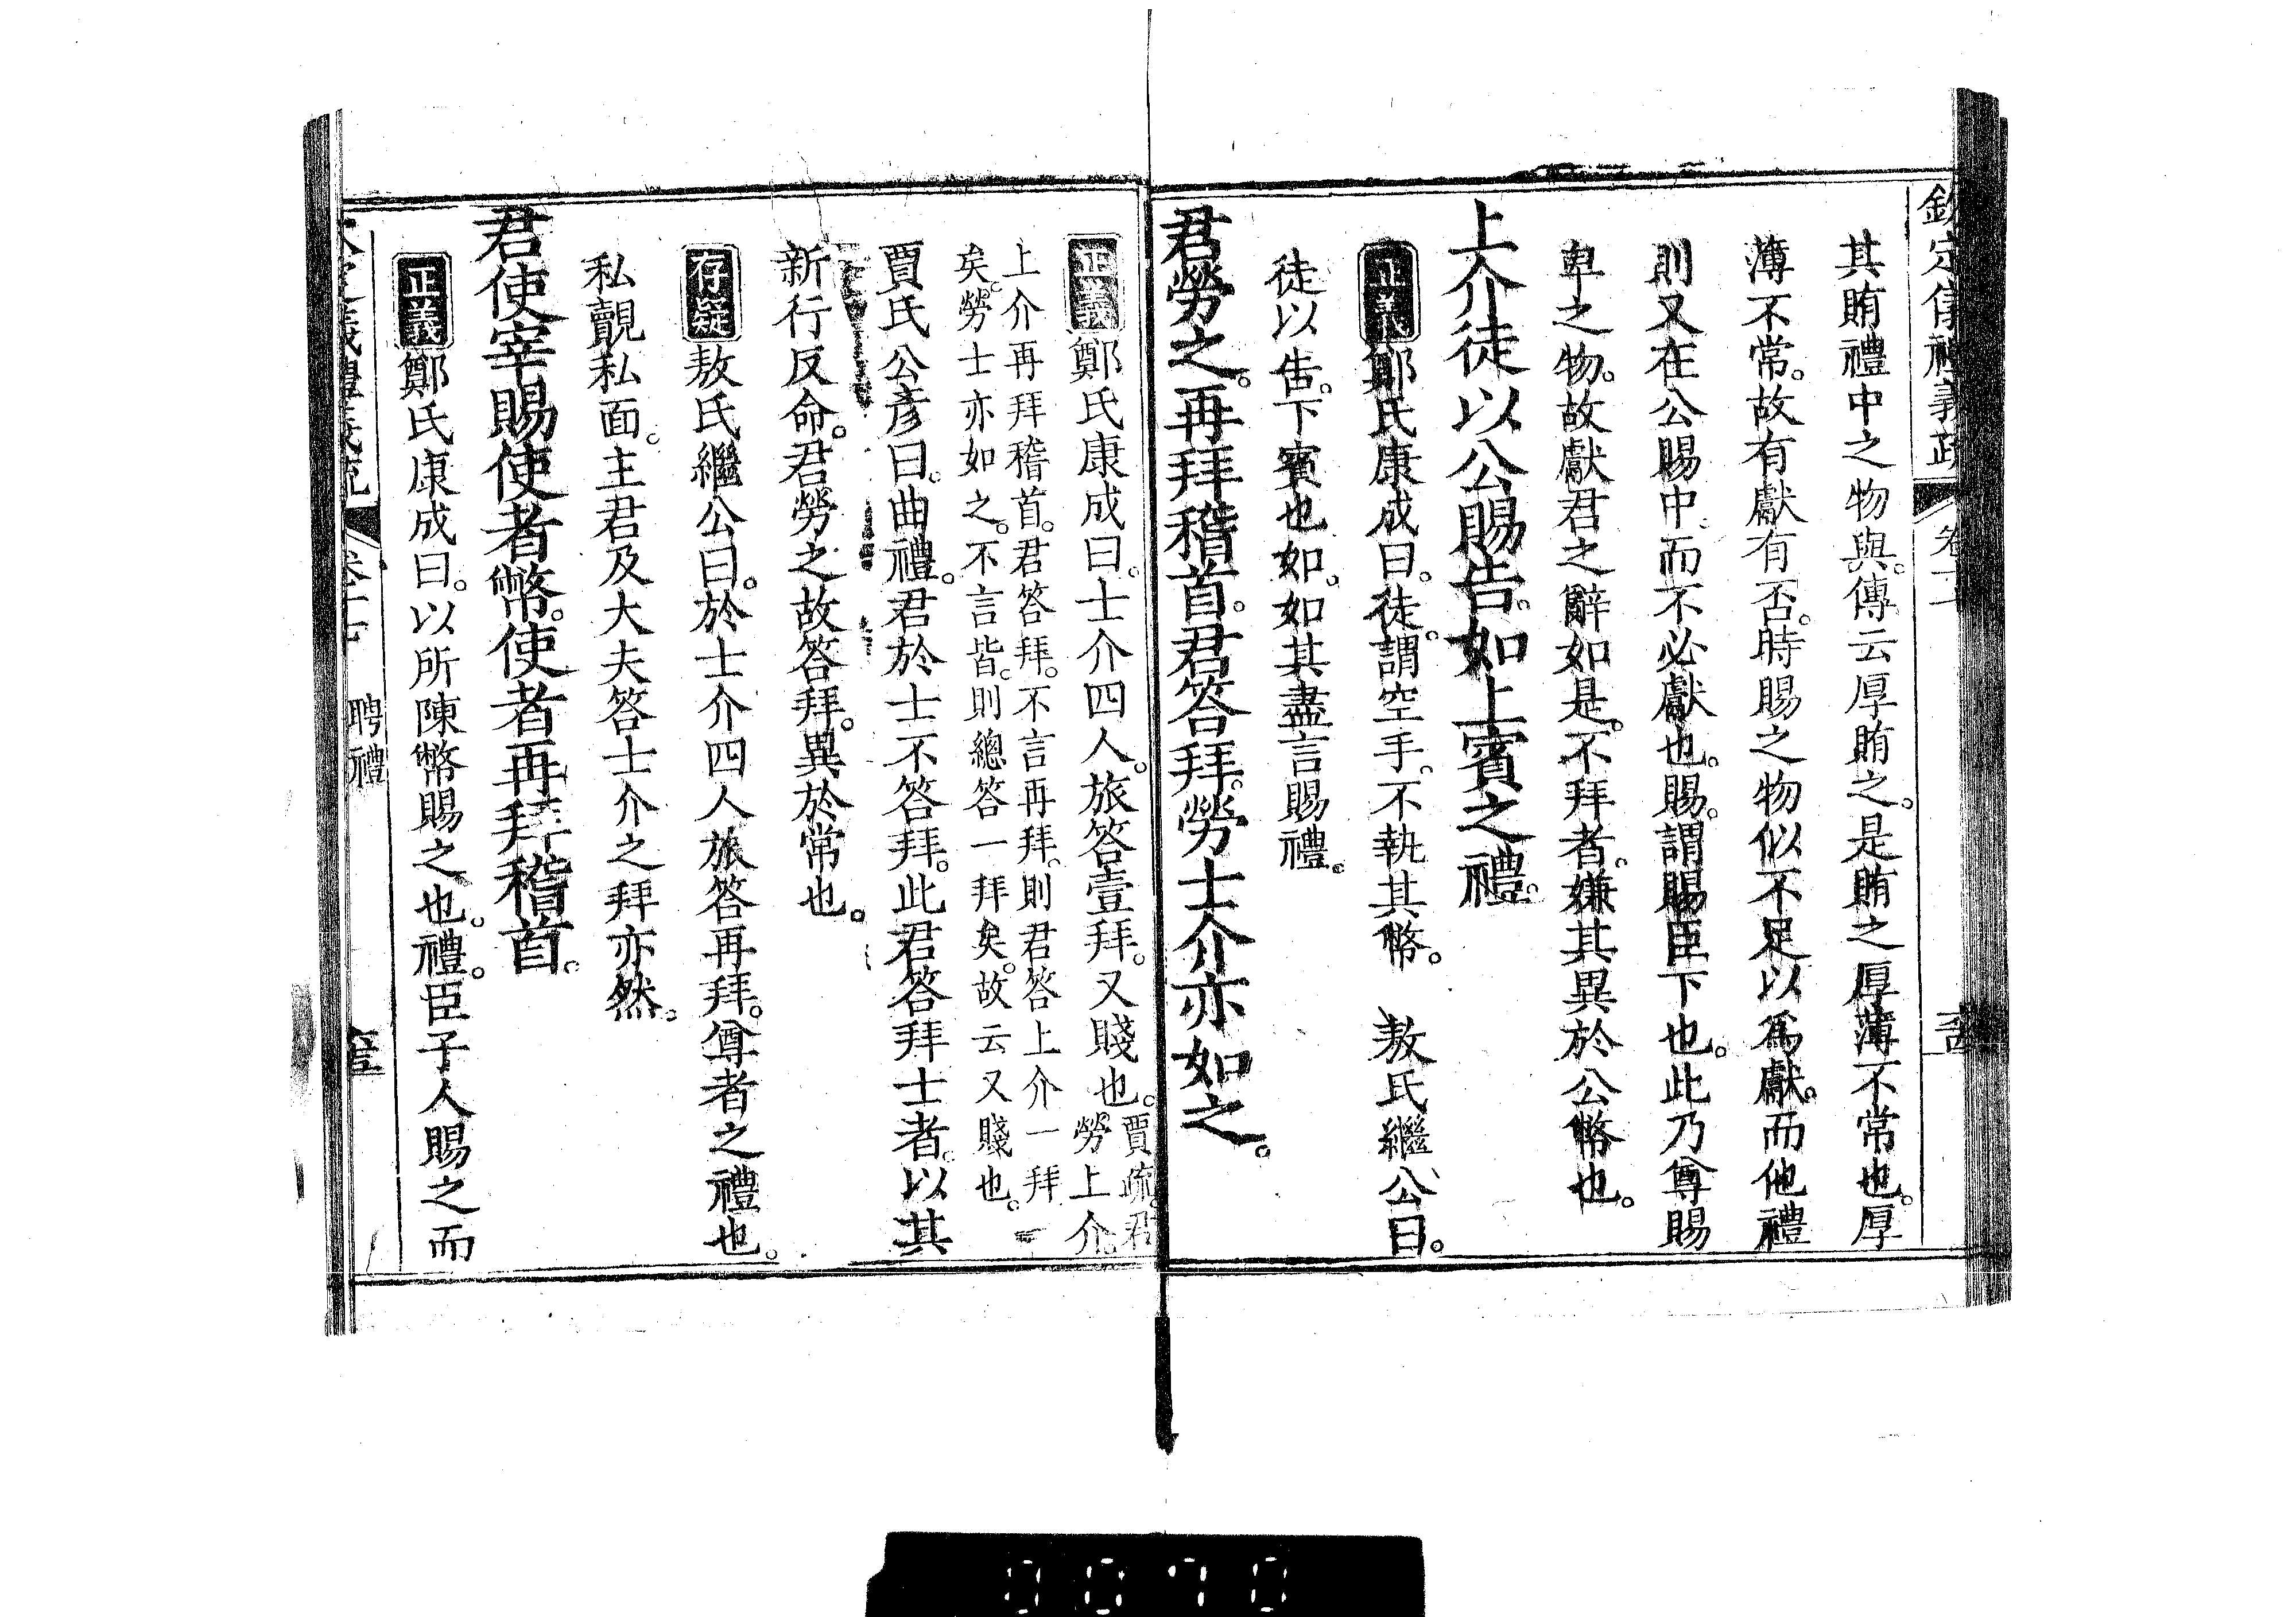 欽定儀禮義疏 卷十
其賄禮中之物與。傳云厚賄之。是賄之厚薄不常也。厚
薄不常。故有獻有否。時賜之物似不足以爲獻。而他禮
則又在公賜中。而不必獻也。賜。謂賜臣下也。此乃尊賜
卑之物。故獻君之辭如是。不拜者。嫌其異於公幣也。
上介徒以公賜告。如上賓之禮。
正義鄭氏康成曰。徒。謂空手。不執其幣。 敖氏繼公曰。
徒以告。下賓也。如。如其盡言賜禮。
君勞之。再拜稽首。君答拜。勞士介亦如之。
正義鄭氏康成曰。士介四人。旅答壹拜。又賤也。賈疏。君勞上介。
上介再拜稽首。君答拜。不言再拜。則君答上介一拜
矣。勞士亦如之。不言皆。則總答一拜矣。故云又賤也。
賈氏公彥曰。曲禮。君於士不答拜。此君答拜士者。以其
新行反命。君勞之故答拜。異於常也。
存疑敖氏繼公曰。於士介四人旅答再拜。尊者之禮也。
私覿私面。主君及大夫答士介之拜亦然。
君使宰賜使者幣。使者再拜稽首。
正義鄭氏康成曰。以所陳幣賜之也。禮。臣子人賜之而
聘禮